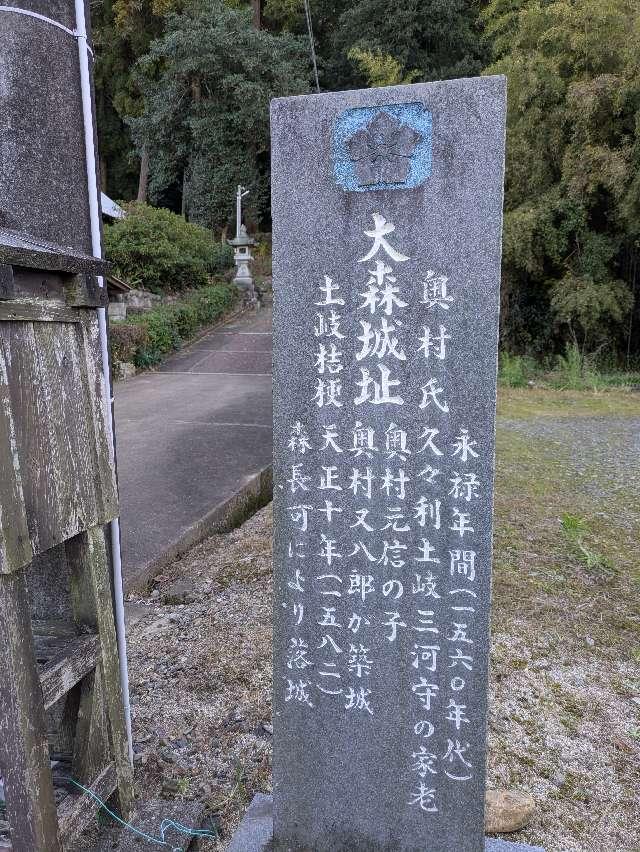 大森城址
奥村氏
土岐桔梗
永禄年間(一五六〇年代)
久々利土岐三河守の家老
奥村元信の子
奥村又八郎が築城
天正十年(一五八二)
森長可により落城